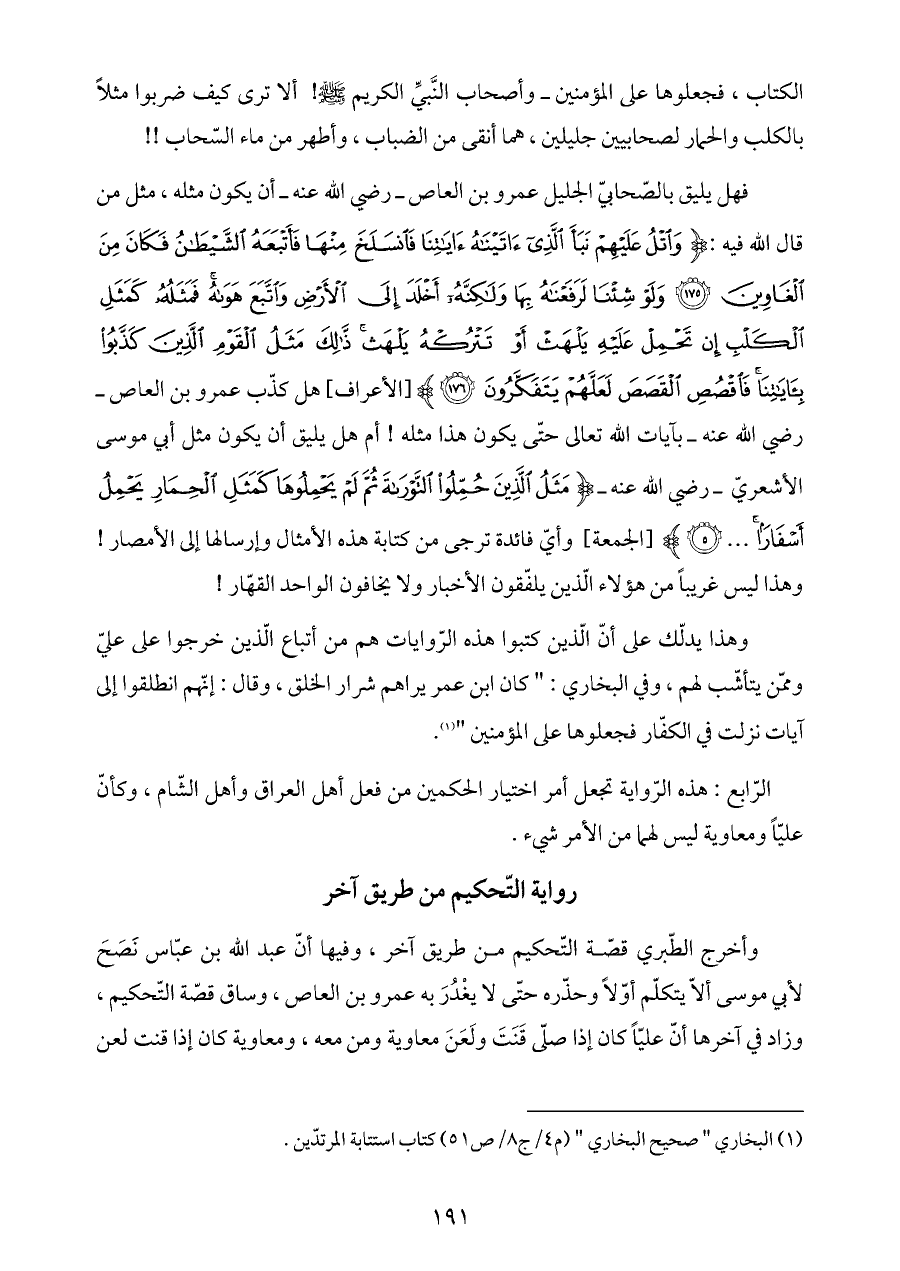 الكتاب ، فجعلوها على المؤمنين ـ وأصحاب النَّبيِّ الكريم ﷺ! ألا ترى كيف ضربوا مثلاً
بالكلب والحمار لصحابيين جليلين ، هما أنقى من الضباب ، وأطهر من ماء السّحاب !!
فهل يليق بالصّحابيّ الجليل عمرو بن العاص ـ رضي الله عنه ـ أن يكون مثله ، مثل من
قال الله فيه : ﴿ وَٱتۡلُ عَلَيۡهِمۡ نَبَأَ ٱلَّذِيٓ ءَاتَيۡنَٰهُ ءَايَٰتِنَا فَٱنسَلَخَ مِنۡهَا فَأَتۡبَعَهُ ٱلشَّيۡطَٰنُ فَكَانَ مِنَ
ٱلۡغَاوِينَ ١٧٥ وَلَوۡ شِئۡنَا لَرَفَعۡنَٰهُ بِهَا وَلَٰكِنَّهُۥٓ أَخۡلَدَ إِلَى ٱلۡأَرۡضِ وَٱتَّبَعَ هَوَىٰهُۚ فَمَثَلُهُۥ كَمَثَلِ
ٱلۡكَلۡبِ إِن تَحۡمِلۡ عَلَيۡهِ يَلۡهَثۡ أَوۡ تَتۡرُكۡهُ يَلۡهَثۚ ذَّٰلِكَ مَثَلُ ٱلۡقَوۡمِ ٱلَّذِينَ كَذَّبُواْ
بِـَٔايَٰتِنَاۚ فَٱقۡصُصِ ٱلۡقَصَصَ لَعَلَّهُمۡ يَتَفَكَّرُونَ ١٧٦ ﴾ [الأعراف] هل كذّب عمرو بن العاص ـ
رضي الله عنه ـ بآيات الله تعالى حتّى يكون هذا مثله ! أم هل يليق أن يكون مثل أبي موسى
الأشعريّ ـ رضي الله عنه ـ ﴿ مَثَلُ ٱلَّذِينَ حُمِّلُواْ ٱلتَّوۡرَىٰةَ ثُمَّ لَمۡ يَحۡمِلُوهَا كَمَثَلِ ٱلۡحِمَارِ يَحۡمِلُ
أَسۡفَارَۢاۚ ... ٥ ﴾ [الجمعة] وأيّ فائدة ترجى من كتابة هذه الأمثال وإرسالها إلى الأمصار !
وهذا ليس غريباً من هؤلاء الّذين يلفّقون الأخبار ولا يخافون الواحد القهّار !
وهذا يدلّك على أنّ الّذين كتبوا هذه الرّوايات هم من أتباع الّذين خرجوا على عليّ
وممّن يتأشّب لهم ، وفي البخاري : " كان ابن عمر يراهم شرار الخلق ، وقال : إنّهم انطلقوا إلى
آيات نزلت في الكفّار فجعلوها على المؤمنين "(١).
الرّابع : هذه الرّواية تجعل أمر اختيار الحكمين من فعل أهل العراق وأهل الشّام ، وكأنّ
عليّاً ومعاوية ليس لهما من الأمر شيء .
رواية التّحكيم من طريق آخر
وأخرج الطّبري قصّـة التّحكيم مـن طريق آخر ، وفيها أنّ عبد الله بن عبّاس نَصَحَ
لأبي موسى ألاّ يتكلّم أوّلاً وحذّره حتّى لا يغْدُرَ به عمرو بن العاص ، وساق قصّة التّحكيم ،
وزاد في آخرها أنّ عليّاً كان إذا صلّى قَنَتَ ولَعَنَ معاوية ومن معه ، ومعاوية كان إذا قنت لعن
(١) البخاري " صحيح البخاري " (م٤/ ج٨/ ص٥١) كتاب استتابة المرتدّين .
١٩١